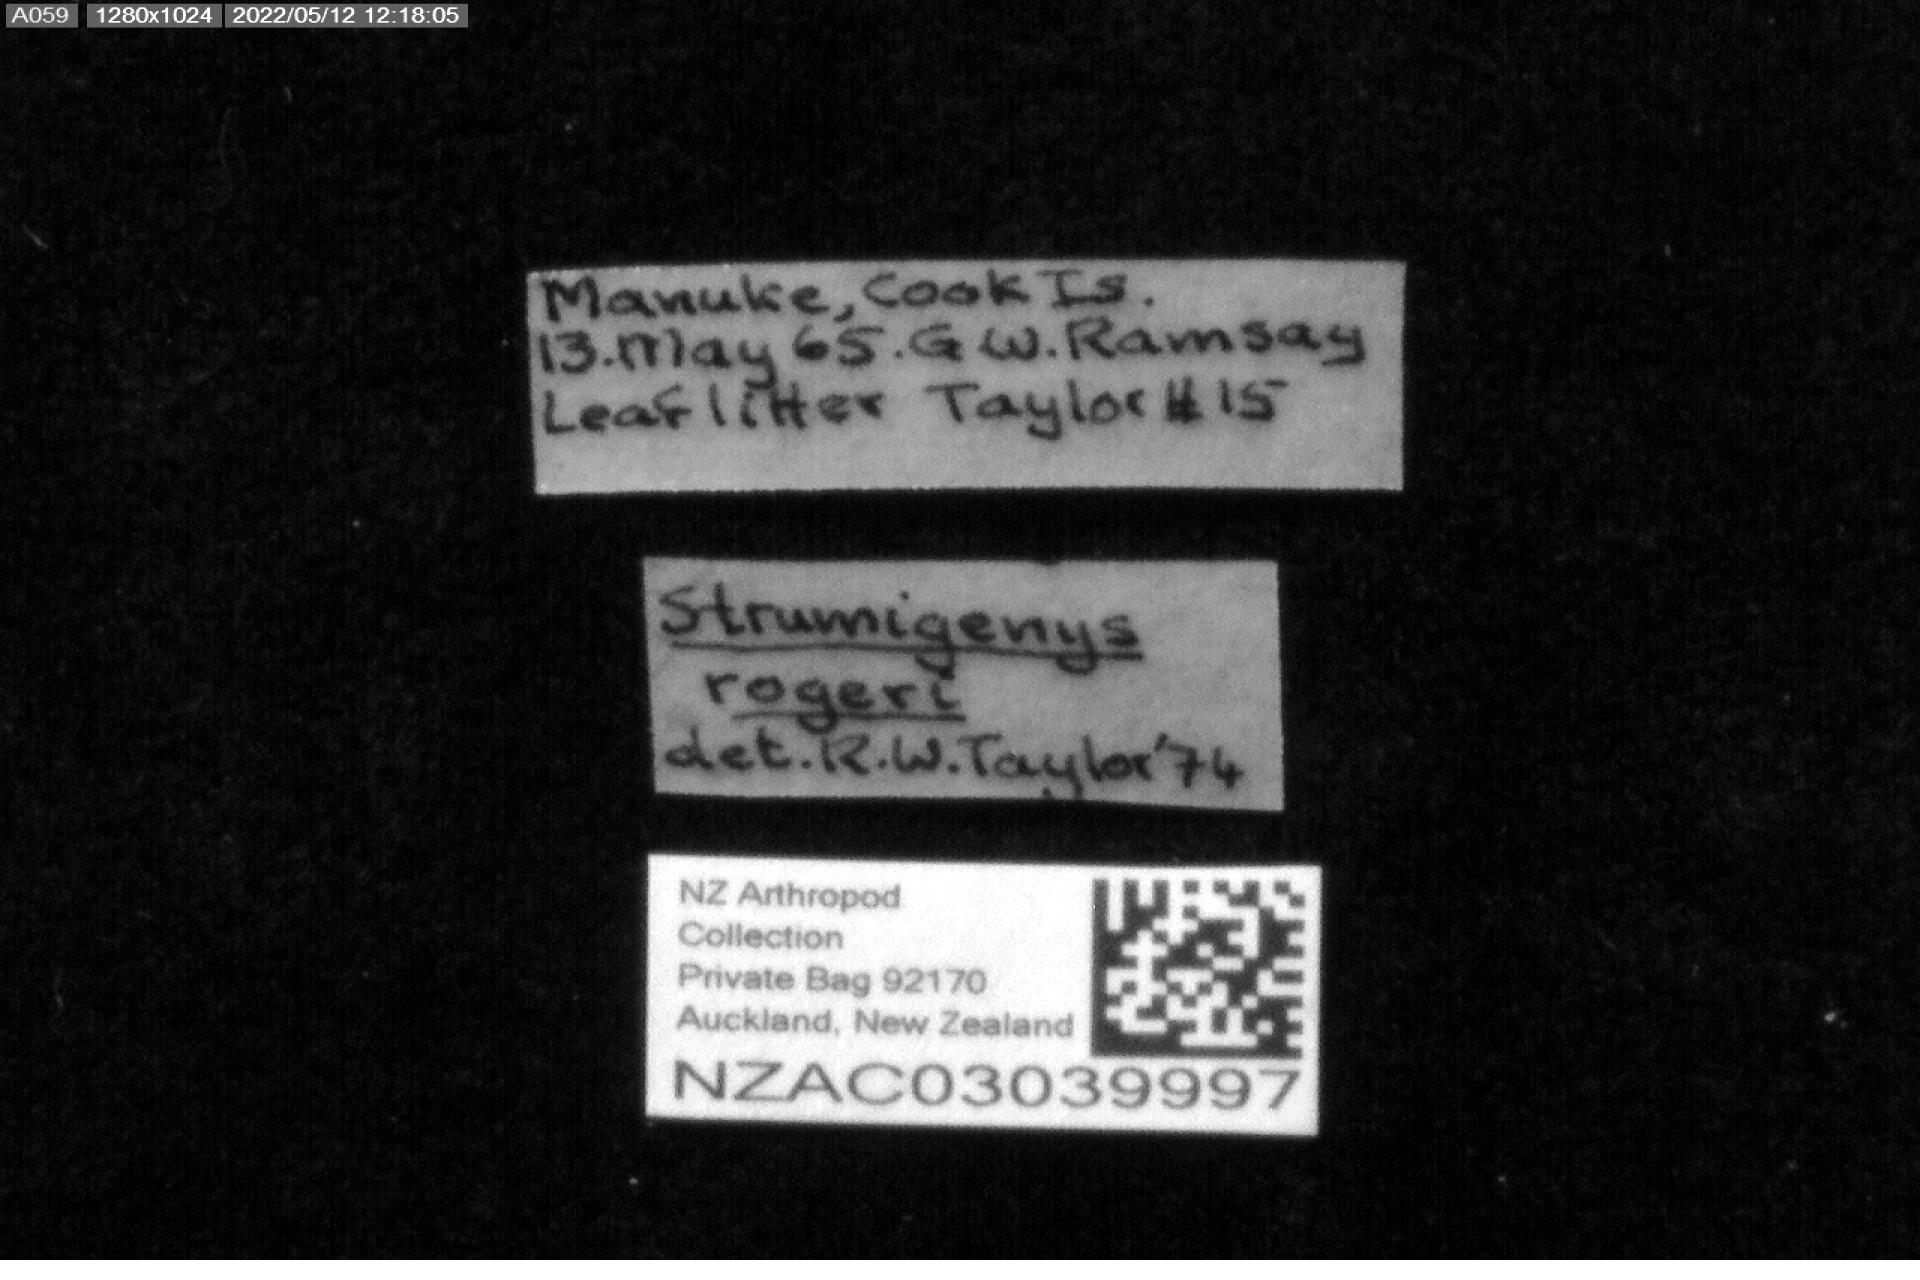 A059 1280x1024 2022/05/12 12:18:05
Manuke, Cook Is.
13.May 65.G W.Ramsay
Leaf litter Taylor # 15
Strumigenys
rogeri
det. R.W.Taylor '74
NZ Arthropod
Collection
Private Bag 92170
Auckland, New Zealand
NZAC03039997